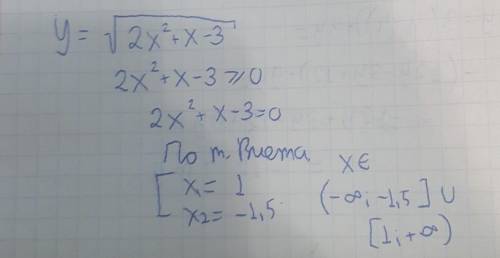 y = √2x²+x-3
2x²+x-3 ⩾ 0
2x²+x-3=0
По т. Виета
x₁ = 1
x₂ = -1,5
x∈
(-∞; -1,5] ∪
[1; +∞)